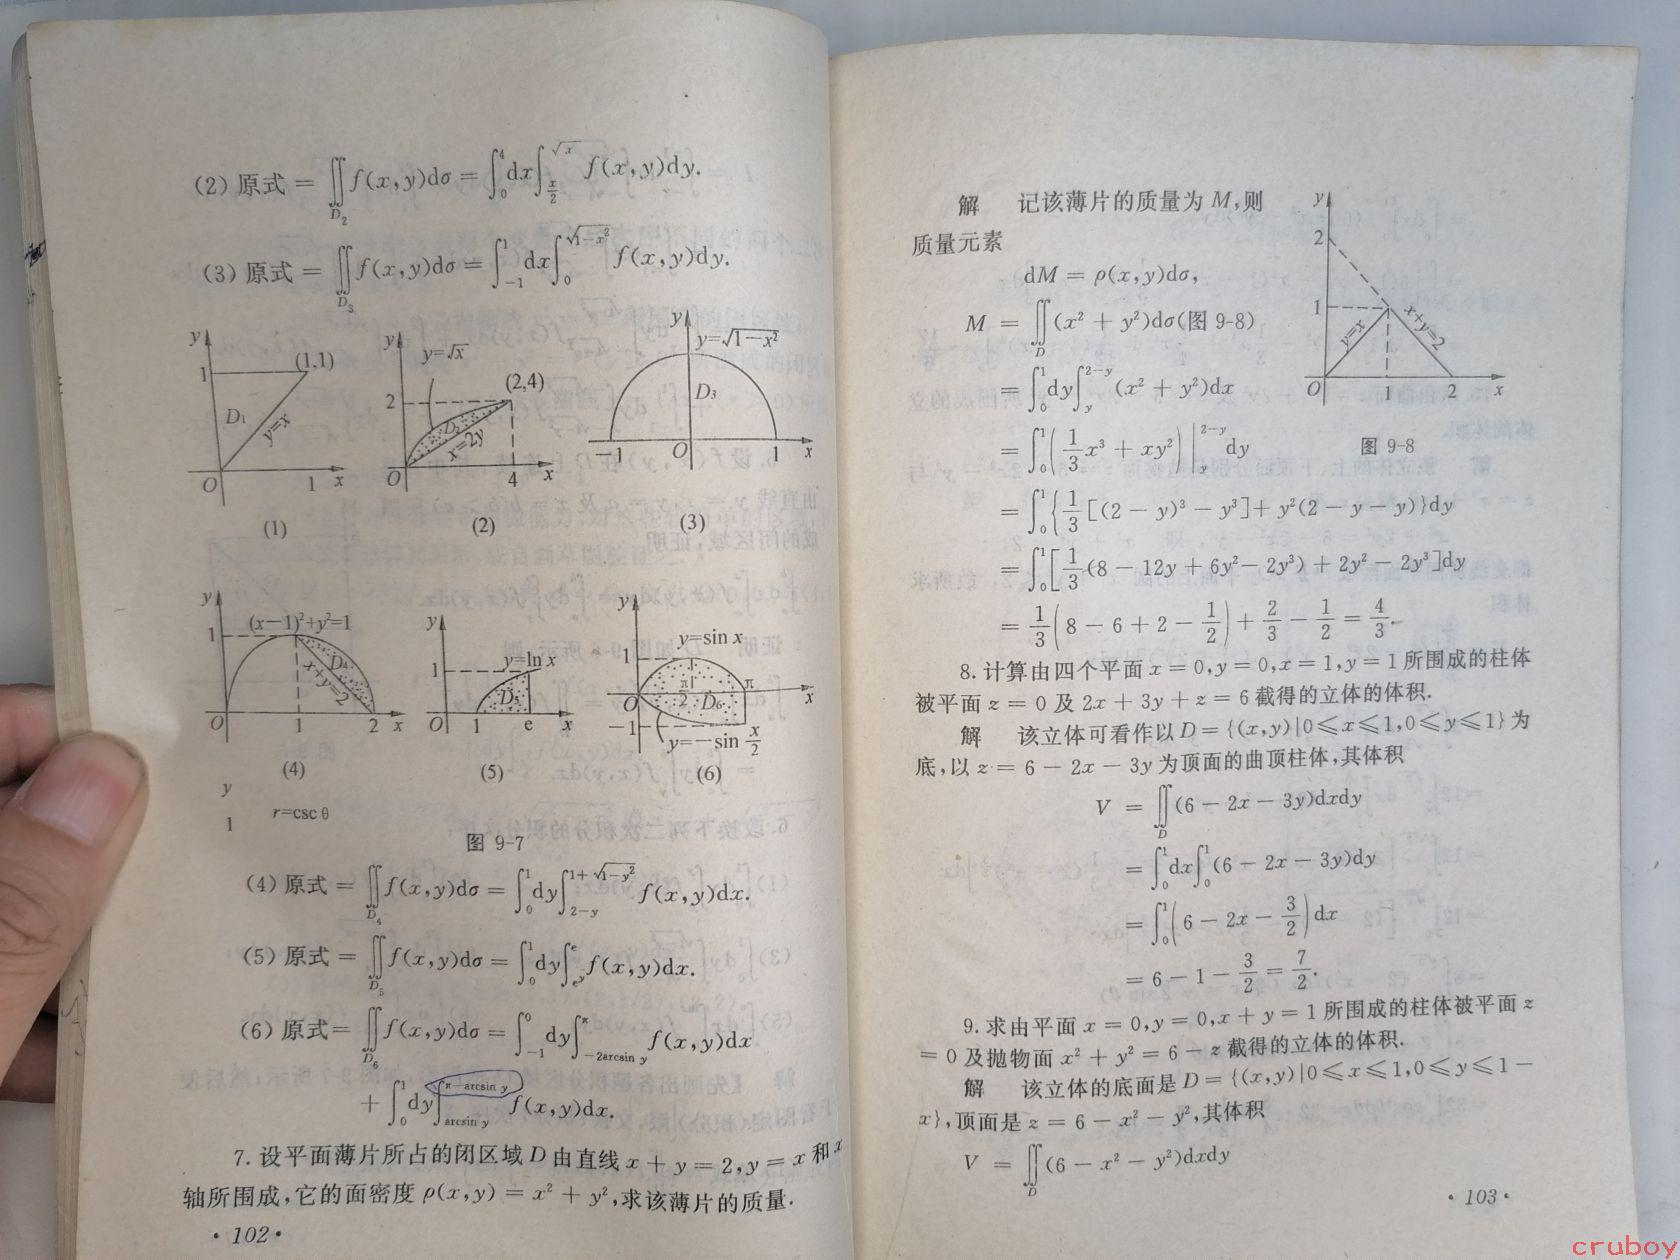 (2) 原式 = ∬_{D₂} f(x,y)dσ = ∫₀⁴ dx ∫_{x/2}^{√x} f(x,y)dy.
(3) 原式 = ∬_{D₃} f(x,y)dσ = ∫₋₁¹ dx ∫₀^{√(1-x²)} f(x,y)dy.
y 1 (1,1) D₁ y=x O 1 x
(1)
y y=√x (2,4) 2 D₂ x=2y O 4 x
(2)
y y=√(1-x²) D₃ -1 O 1 x
(3)
y 1 (x-1)²+y²=1 D₄ x+y=2 O 1 2 x
(4)
y 1 y=ln x D₅ O 1 e x
(5)
y y=sin x 1 π/2 D₆ π O x -1 y=-sin x/2
(6)
y
1
r=csc θ
图 9-7
(4) 原式 = ∬_{D₄} f(x,y)dσ = ∫₀¹ dy ∫_{2-y}^{1+√(1-y²)} f(x,y)dx.
(5) 原式 = ∬_{D₅} f(x,y)dσ = ∫₀¹ dy ∫_{e^y}^{e} f(x,y)dx.
(6) 原式 = ∬_{D₆} f(x,y)dσ = ∫₋₁⁰ dy ∫_{-2arcsin y}^{π} f(x,y)dx
+ ∫₀¹ dy ∫_{arcsin y}^{π-arcsin y} f(x,y)dx.
7. 设平面薄片所占的闭区域 D 由直线 x + y = 2, y = x 和 x
轴所围成,它的面密度 ρ(x,y) = x² + y²,求该薄片的质量.
· 102 ·
解 记该薄片的质量为 M,则
质量元素
dM = ρ(x,y)dσ,
M = ∬_D (x² + y²)dσ(图 9-8)
= ∫₀¹ dy ∫_y^{2-y} (x² + y²)dx
= ∫₀¹ (1/3 x³ + xy²)|_y^{2-y} dy
= ∫₀¹ {1/3 [(2 - y)³ - y³] + y²(2 - y - y)}dy
= ∫₀¹ [1/3 (8 - 12y + 6y² - 2y³) + 2y² - 2y³]dy
= 1/3 (8 - 6 + 2 - 1/2) + 2/3 - 1/2 = 4/3.
y 2 1 y=x x+y=2 O 1 2 x
图 9-8
8. 计算由四个平面 x = 0, y = 0, x = 1, y = 1 所围成的柱体
被平面 z = 0 及 2x + 3y + z = 6 截得的立体的体积.
解 该立体可看作以 D = {(x,y)|0≤x≤1,0≤y≤1} 为
底,以 z = 6 - 2x - 3y 为顶面的曲顶柱体,其体积
V = ∬_D (6 - 2x - 3y)dxdy
= ∫₀¹ dx ∫₀¹ (6 - 2x - 3y)dy
= ∫₀¹ (6 - 2x - 3/2) dx
= 6 - 1 - 3/2 = 7/2.
9. 求由平面 x = 0, y = 0, x + y = 1 所围成的柱体被平面 z
= 0 及抛物面 x² + y² = 6 - z 截得的立体的体积.
解 该立体的底面是 D = {(x,y)|0≤x≤1,0≤y≤1-
x},顶面是 z = 6 - x² - y²,其体积
V = ∬_D (6 - x² - y²)dxdy
· 103 ·
cruboy